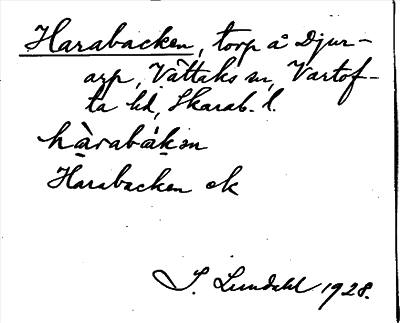 Harabacken, torp å Djur-
arp, Vättaks sn, Vartof-
ta hd, Skarab. l.
hàrabákən
Harabacken ek
I. Lundahl 1928.